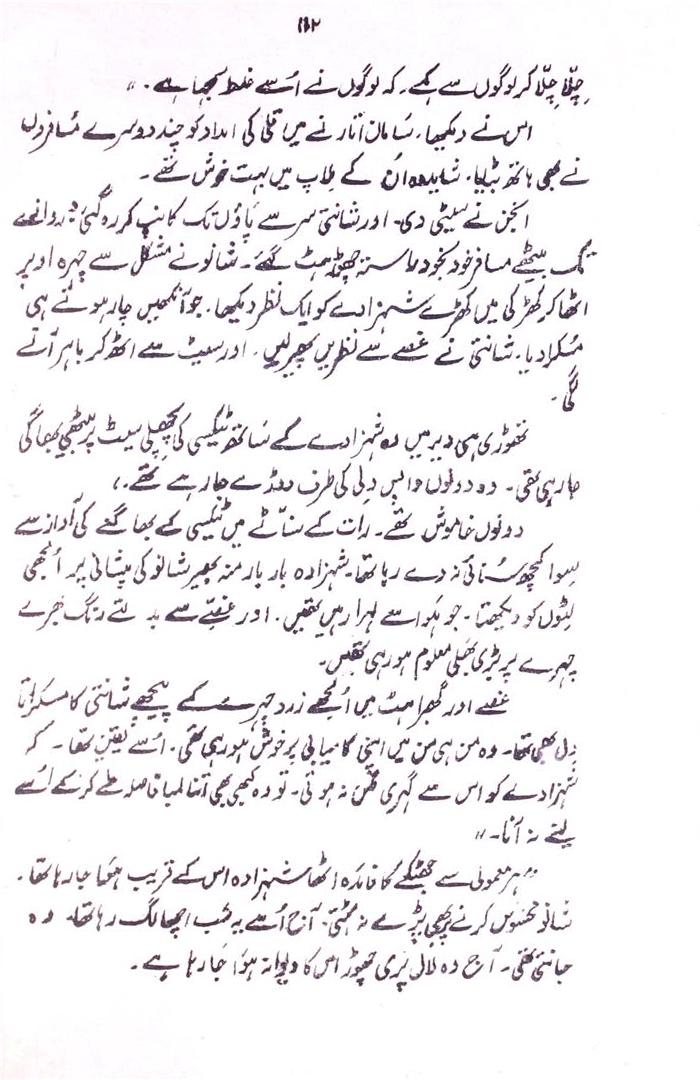 ۱۱۲
چِلّا چِلّا کر لوگوں سے کہے۔ کہ لوگوں نے اُسے غلط سمجھا ہے۔"
اس نے دیکھا۔ سَامان اتارنے میں قلی کی امداد کو چند دوسرے مُسافروں
نے بھی ہاتھ بٹایا۔ شاید وہ اُن کے مِلاپ میں بہت خوش تھے۔
انجن نے سیٹی دی۔ اور شانتی سر سے پاؤں تک کانپ کر رہ گئی دروازے
تک بیٹھے مسافر خود بخود راستہ چھوڑ ہٹ گئے۔ شانو نے مشکل سے چہرہ اوپر
اٹھا کر کھڑکی میں کھڑے شہزادے کو ایک نظر دیکھا۔ جو آنکھیں چار ہوتے ہی
مُسکرا دیا۔ شانتی نے غصے سے نظریں پھیر لیں۔ اور سیٹ سے اٹھ کر باہر آنے
لگی۔
تھوڑی ہی دیر میں وہ شہزادے کے سَاتھ ٹیکسی کی پچھلی سیٹ پر بیٹھی بھاگی
جا رہی تھی۔ وہ دونوں واپس دِلی کی طرف دوڑے جا رہے تھے۔
دونوں خاموش تھے۔ رات کے سناٹے میں ٹیکسی کے بھاگنے کی آواز سے
سِوا کچھ سُنائی نہ دے رہا تھا۔ شہزادہ بار بار منہ پھیر شانو کی پیشانی پر اُلجھی
لِٹوں کو دیکھتا۔ جو ہَوا سے لہرا رہیں تھیں۔ اور غصّے سے بدلتے رنگ بھرے
چہرے پر بڑی بھلی معلوم ہو رہی تھیں۔
غصے اور گھبراہٹ میں اُلجھے زرد چہرے کے پیچھے شانتی کا مسکراتا
دِل بھی تھا۔ وہ من ہی من میں اپنی کامیابی پر خوش ہو رہی تھی۔ اُسے یقین تھا۔ کہ
شہزادے کو اس سے گہری لگن نہ ہوتی۔ تو وہ کبھی بھی اتنا لمبا فاصلہ طے کر کے اُسے
لینے نہ آتا۔"
ہر معمولی سے جھٹکے کا فائدہ اٹھا شہزادہ اس کے قریب ہوا جا رہا تھا۔
شانو محسوس کرنے پر بھی پرے نہ ہٹتی۔ آج اُسے یہ سَب اچھا لگ رہا تھا۔ وہ
جانتی تھی۔ آج وہ لال پَری چھوڑ اس کا دیوانہ ہوا جا رہا ہے۔